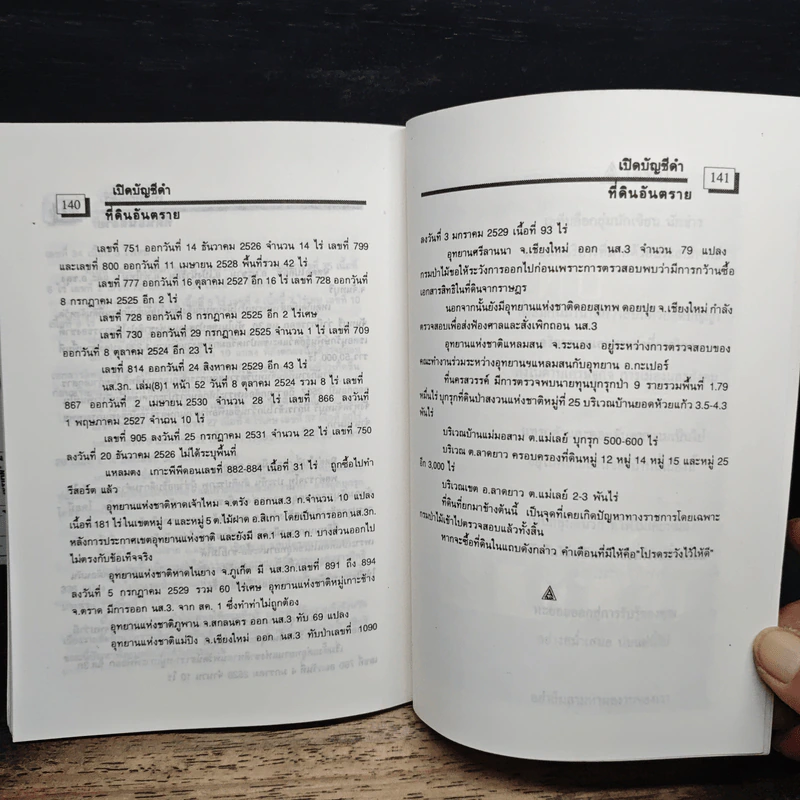 เปิดบัญชีดำ
140
ที่ดินอันตราย
เลขที่ 751 ออกวันที่ 14 ธันวาคม 2526 จำนวน 14 ไร่ เลขที่ 799
และเลขที่ 800 ออกวันที่ 11 เมษายน 2528 พื้นที่รวม 42 ไร่
เลขที่ 777 ออกวันที่ 16 ตุลาคม 2527 อีก 16 ไร่ เลขที่ 728 ออกวันที่
8 กรกฎาคม 2525 อีก 2 ไร่
เลขที่ 728 ออกวันที่ 8 กรกฎาคม 2525 อีก 2 ไร่เศษ
เลขที่ 730 ออกวันที่ 29 กรกฎาคม 2525 จำนวน 1 ไร่ เลขที่ 709
ออกวันที่ 8 ตุลาคม 2524 อีก 23 ไร่
เลขที่ 814 ออกวันที่ 24 สิงหาคม 2529 อีก 43 ไร่
นส.3ก. เล่ม(8)1 หน้า 52 วันที่ 8 ตุลาคม 2524 รวม 8 ไร่ เลขที่
867 ออกวันที่ 2 เมษายน 2530 จำนวน 28 ไร่ เลขที่ 866 ลงวันที่
1 พฤษภาคม 2527 จำนวน 10 ไร่
เลขที่ 905 ลงวันที่ 25 กรกฎาคม 2531 จำนวน 22 ไร่ เลขที่ 750
ลงวันที่ 20 ธันวาคม 2526 ไม่ได้ระบุพื้นที่
แหลมตง เกาะพีพีดอนเลขที่ 882-884 เนื้อที่ 31 ไร่ ถูกซื้อไปทำ
รีสอร์ต แล้ว
อุทยานแห่งชาติหาดเจ้าไหม จ.ตรัง ออกนส.3 ก.จำนวน 10 แปลง
เนื้อที่ 181 ไร่ ในเขตหมู่ 4 และหมู่ 5 ต.ไม้ฝาด อ.สิเกา โดยเป็นการออก นส.3ก.
หลังการประกาศเขตอุทยานแห่งชาติ และยังมี สค.1 นส.3 ก. บางส่วนออกไป
ไม่ตรงกับข้อเท็จจริง
อุทยานแห่งชาติหาดในยาง จ.ภูเก็ต มี นส.3ก.เลขที่ 891 ถึง 894
ลงวันที่ 5 กรกฎาคม 2529 รวม 60 ไร่เศษ อุทยานแห่งชาติหมู่เกาะช้าง
จ.ตราด มีการออก นส.3. จาก สค. 1 ซึ่งทำท่าไม่ถูกต้อง
อุทยานแห่งชาติภูพาน จ.สกลนคร ออก นส.3 ทับ 69 แปลง
อุทยานแห่งชาติแม่ปิง จ.เชียงใหม่ ออก นส.3 ทับป่าเลขที่ 1090
เปิดบัญชีดำ
141
ที่ดินอันตราย
ลงวันที่ 3 มกราคม 2529 เนื้อที่ 93 ไร่
อุทยานศรีลานนา จ.เชียงใหม่ ออก นส.3 จำนวน 79 แปลง
กรมป่าไม้ขอให้ระวังการออกไปก่อนเพราะการตรวจสอบพบว่ามีการกว้านซื้อ
เอกสารสิทธิในที่ดินจากราษฎร
นอกจากนั้นยังมีอุทยานแห่งชาติดอยสุเทพ ดอยปุย จ.เชียงใหม่ กำลัง
ตรวจสอบเพื่อส่งฟ้องศาลและสั่งเพิกถอน นส.3
อุทยานแห่งชาติแหลมสน จ.ระนอง อยู่ระหว่างการตรวจสอบของ
คณะทำงานร่วมระหว่างอุทยานฯแหลมสนกับอุทยาน อ.กะเปอร์
ที่นครสวรรค์ มีการตรวจพบนายทุนบุกรุกป่า 9 รายรวมพื้นที่ 1.79
หมื่นไร่ บุกรุกที่ดินป่าสงวนแห่งชาติหมู่ที่ 25 บริเวณบ้านยอดห้วยแก้ว 3.5-4.3
พันไร่
บริเวณบ้านแม่มอสาม ต.แม่เลย์ บุกรุก 500-600 ไร่
บริเวณ ต.ลาดยาว ครอบครองที่ดินหมู่ 12 หมู่ 14 หมู่ 15 และหมู่ 25
อีก 3,000 ไร่
บริเวณเขต อ.ลาดยาว ต.แม่เลย์ 2-3 พันไร่
ที่ดินที่ยกมาข้างต้นนี้ เป็นจุดที่เคยเกิดปัญหาทางราชการโดยเฉพาะ
กรมป่าไม้เข้าไปตรวจสอบแล้วทั้งสิ้น
หากจะซื้อที่ดินในแถบดังกล่าว คำเตือนที่มีให้คือ"โปรดระวังไว้ให้ดี"